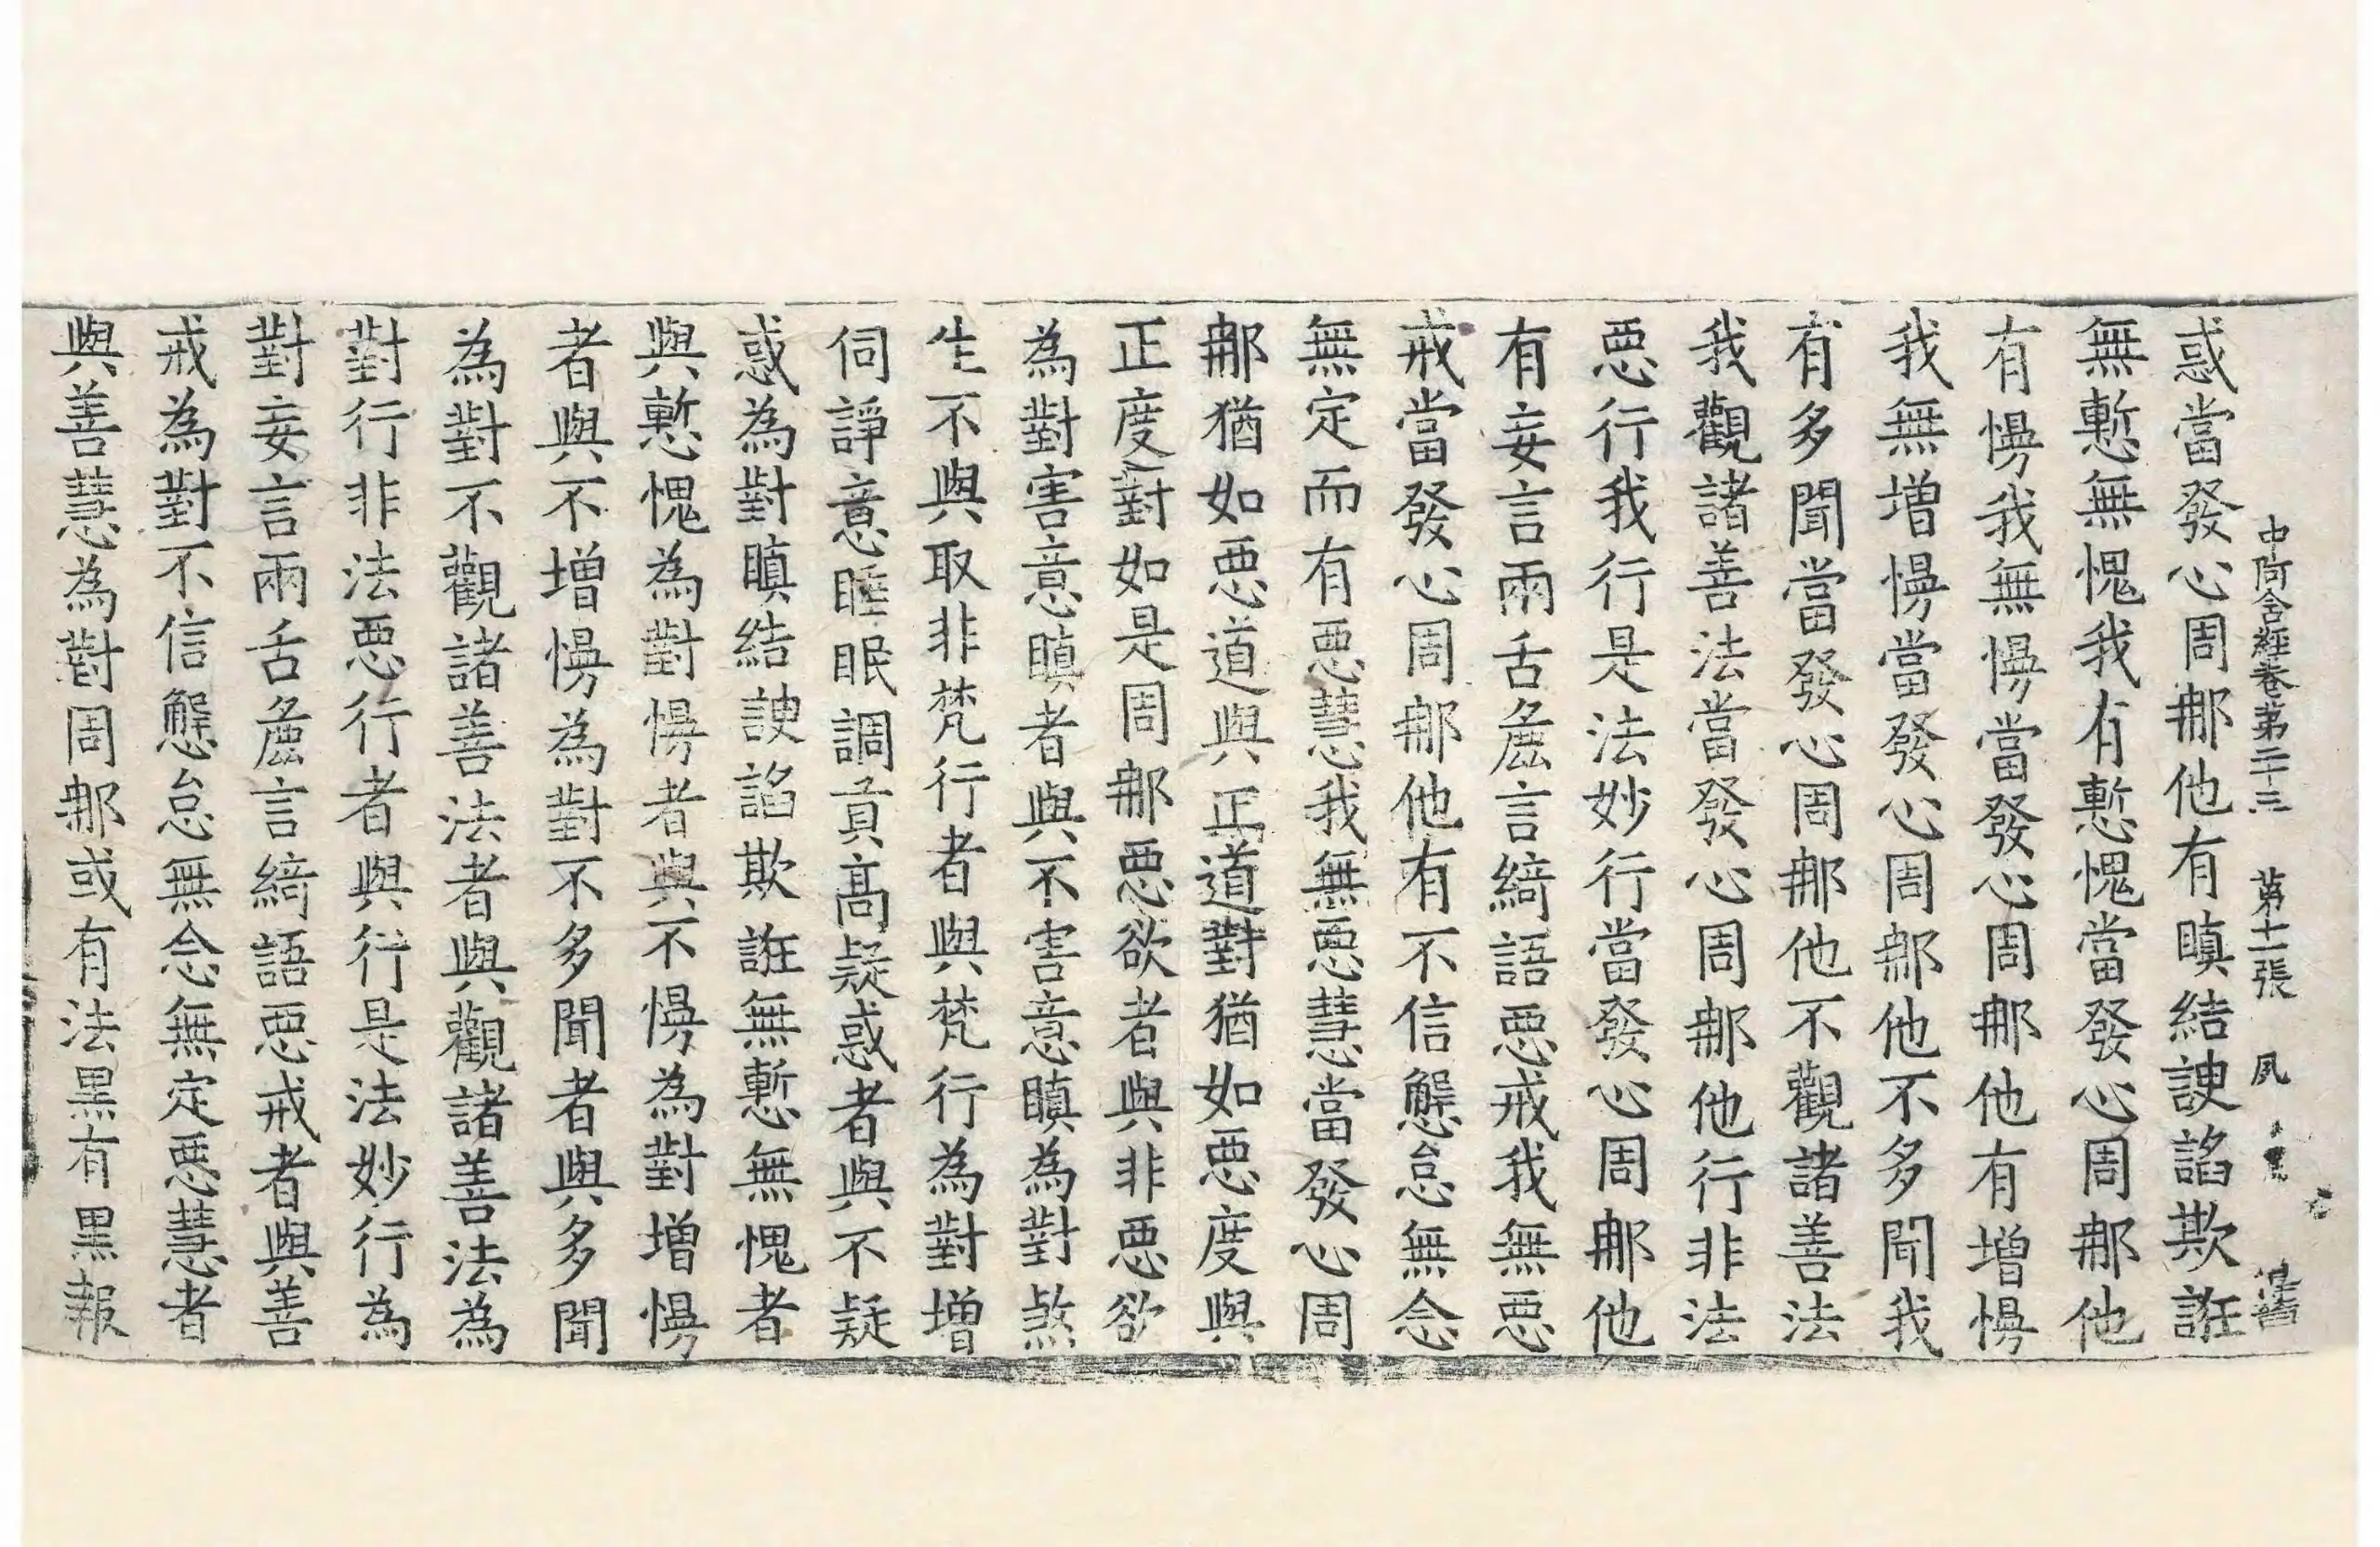 中阿含經卷第二十三 第十一張 夙
惑當發心周那他有瞋結諛諂欺誑
無慙無愧我有慙愧當發心周那他
有慢我無慢當發心周那他有增慢
我無增慢當發心周那他不多聞我
有多聞當發心周那他不觀諸善法
我觀諸善法當發心周那他行非法
惡行我行是法妙行當發心周那他
有妄言兩舌麁言綺語惡戒我無惡
戒當發心周那他有不信懈怠無念
無定而有惡慧我無惡慧當發心周
那猶如惡道與正道對猶如惡度與
正度對如是周那惡欲者與非惡欲
為對害意瞋者與不害意瞋為對煞
生不與取非梵行者與梵行為對增
伺諍意睡眠調貢高疑惑者與不疑
惑為對瞋結諛諂欺誑無慙無愧者
與慙愧為對慢者與不慢為對增慢
者與不增慢為對不多聞者與多聞
為對不觀諸善法者與觀諸善法為
對行非法惡行者與行是法妙行為
對妄言兩舌麁言綺語惡戒者與善
戒為對不信懈怠無念無定惡慧者
與善慧為對周那或有法黑有黑報